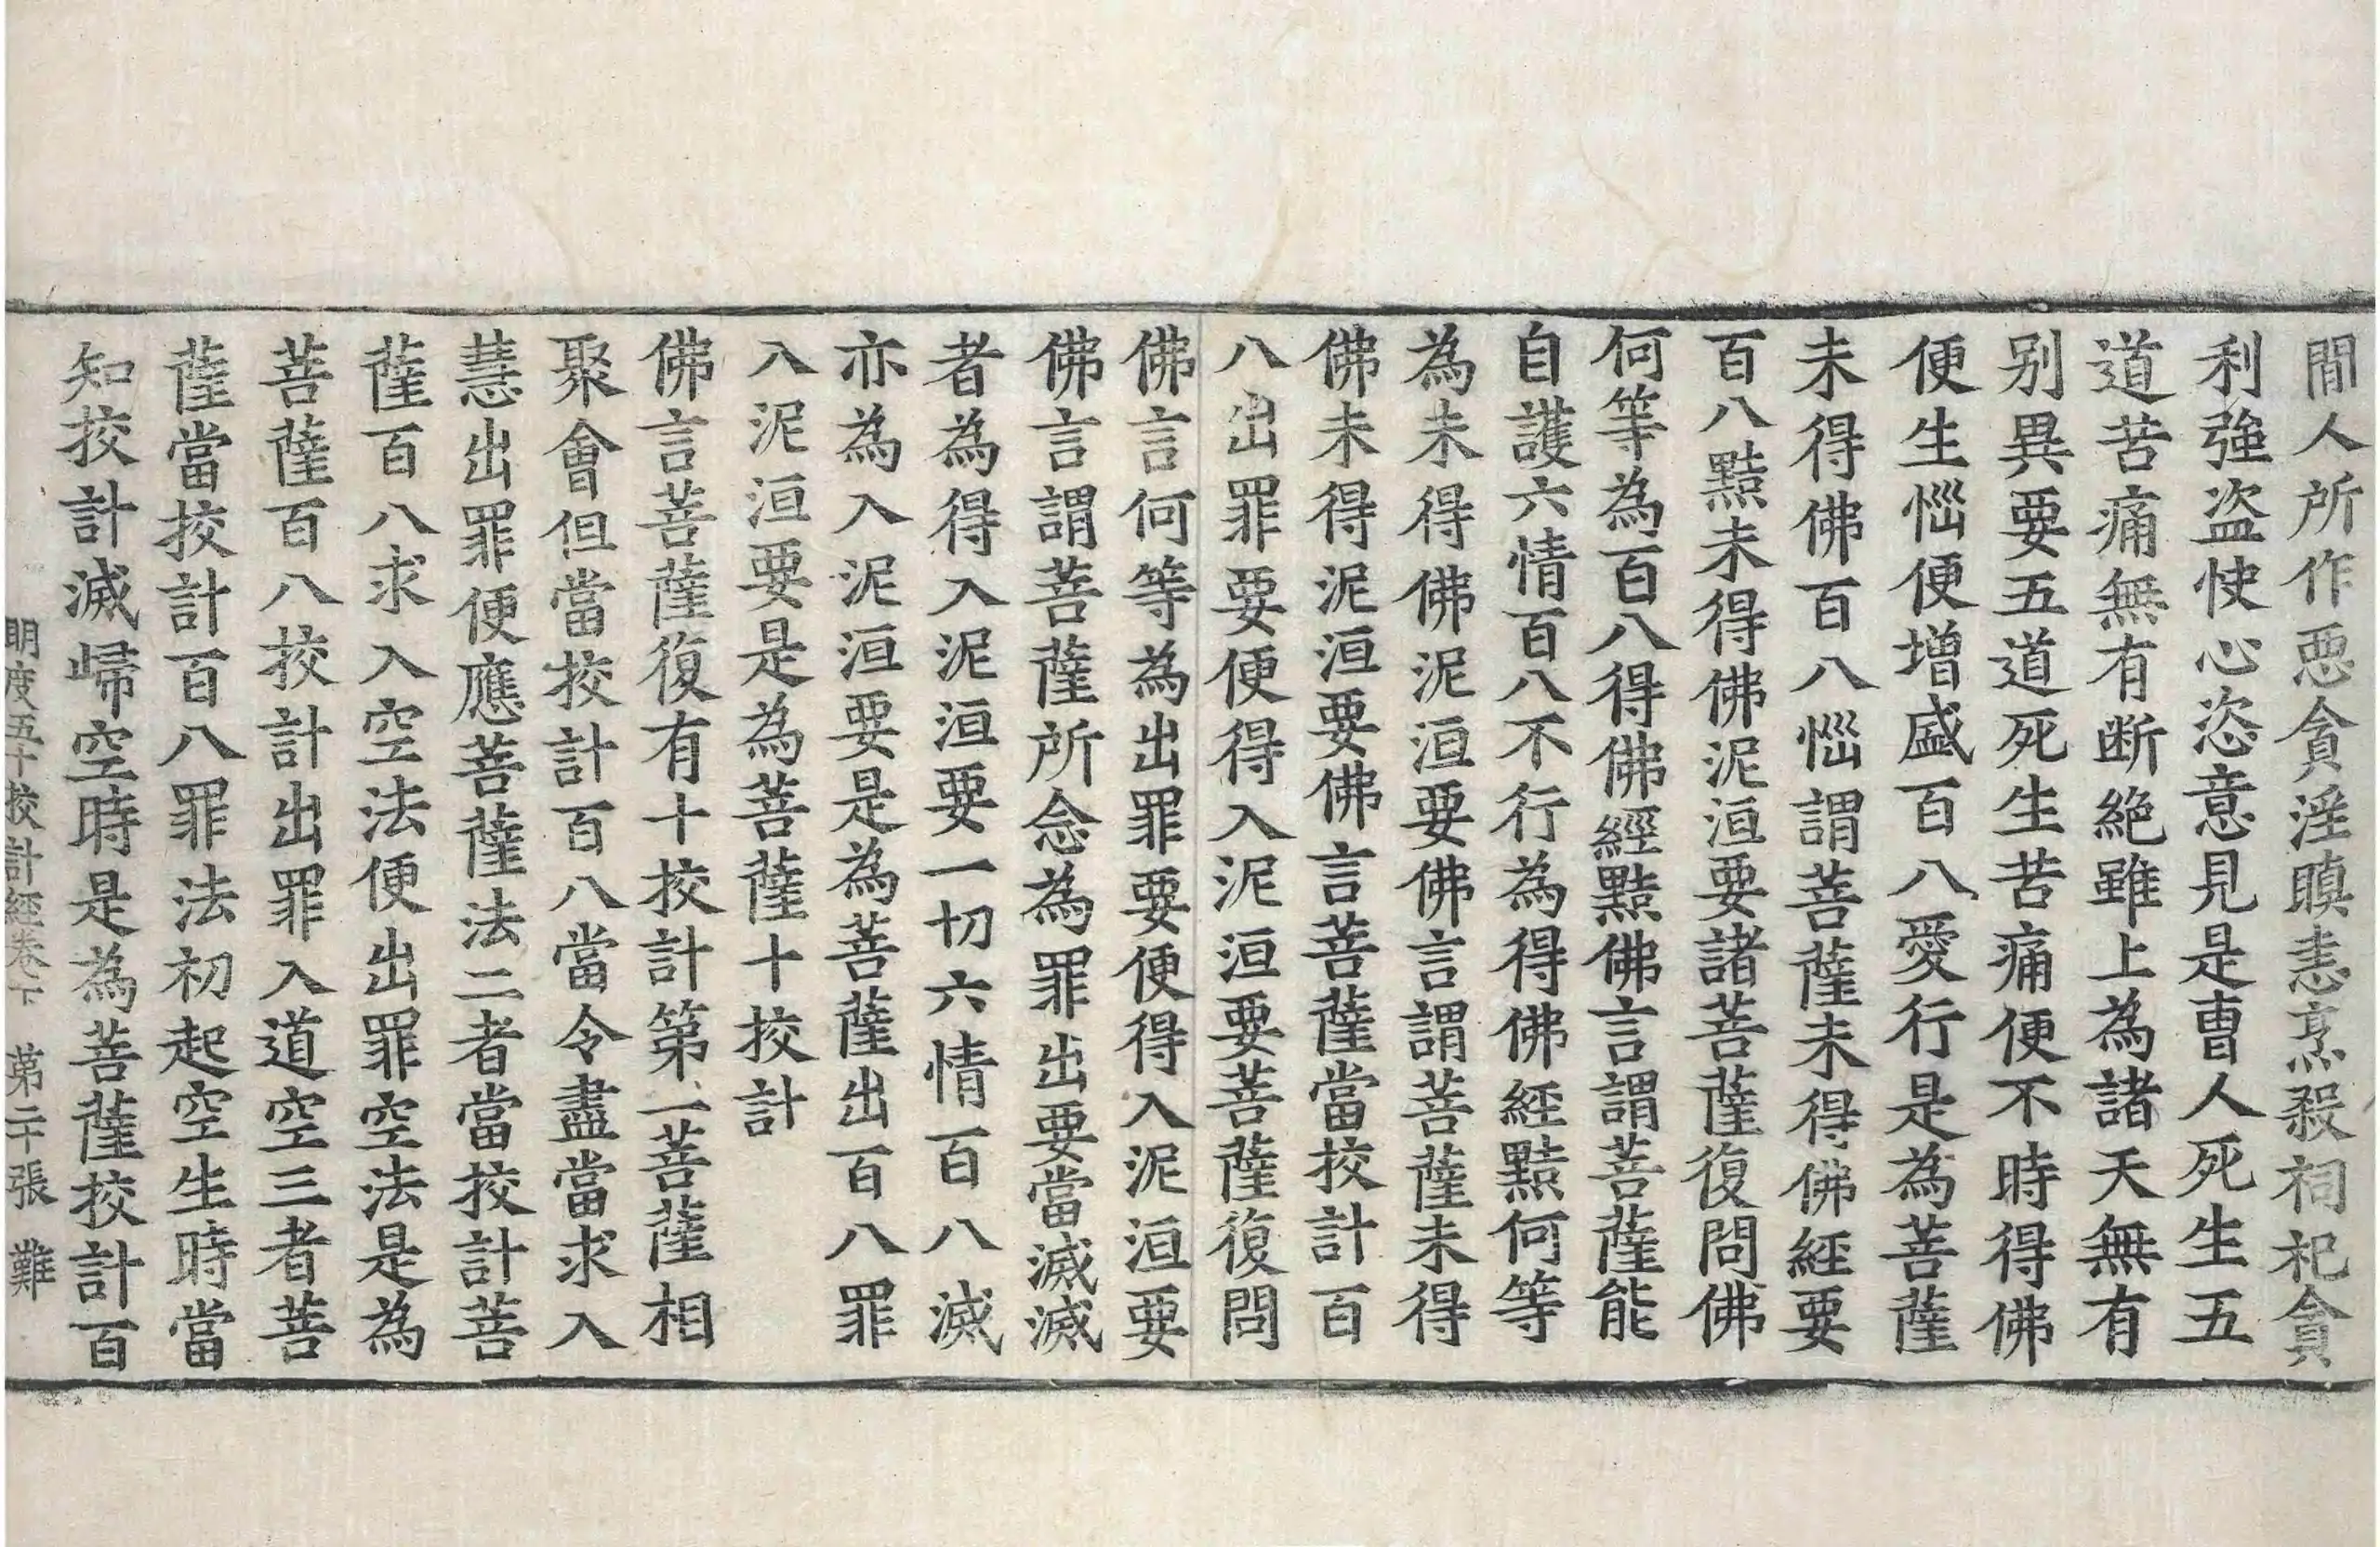 間人所作惡貪淫瞋恚烹殺祠祀貪
利強盜快心恣意見是曹人死生五
道苦痛無有断絕雖上為諸天無有
别異要五道死生苦痛便不時得佛
便生惱便增盛百八愛行是為菩薩
未得佛百八惱謂菩薩未得佛經要
百八黠未得佛泥洹要諸菩薩復問佛
何等為百八得佛經黠佛言謂菩薩能
自護六情百八不行為得佛經黠何等
為未得佛泥洹要佛言謂菩薩未得
佛未得泥洹要佛言菩薩當挍計百
八出罪要便得入泥洹要菩薩復問
佛言何等為出罪要便得入泥洹要
佛言謂菩薩所念為罪出要當滅滅
者為得入泥洹要一切六情百八滅
亦為入泥洹要是為菩薩出百八罪
入泥洹要是為菩薩十挍計
佛言菩薩復有十挍計第一菩薩相
聚會但當挍計百八當令盡當求入
慧出罪便應菩薩法二者當挍計菩
薩百八求入空法便出罪空法是為
菩薩百八挍計出罪入道空三者菩
薩當挍計百八罪法初起空生時當
知挍計滅歸空時是為菩薩挍計百
明度五十挍計經卷下 第二十張 難